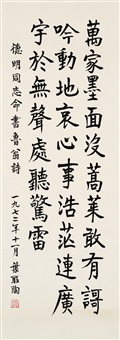 萬家墨面沒蒿萊敢有謌
吟動地哀心事浩茫連廣
宇於無聲處聽驚雷
德明同志命書魯翁詩
一九七二年十一月 葉聖陶